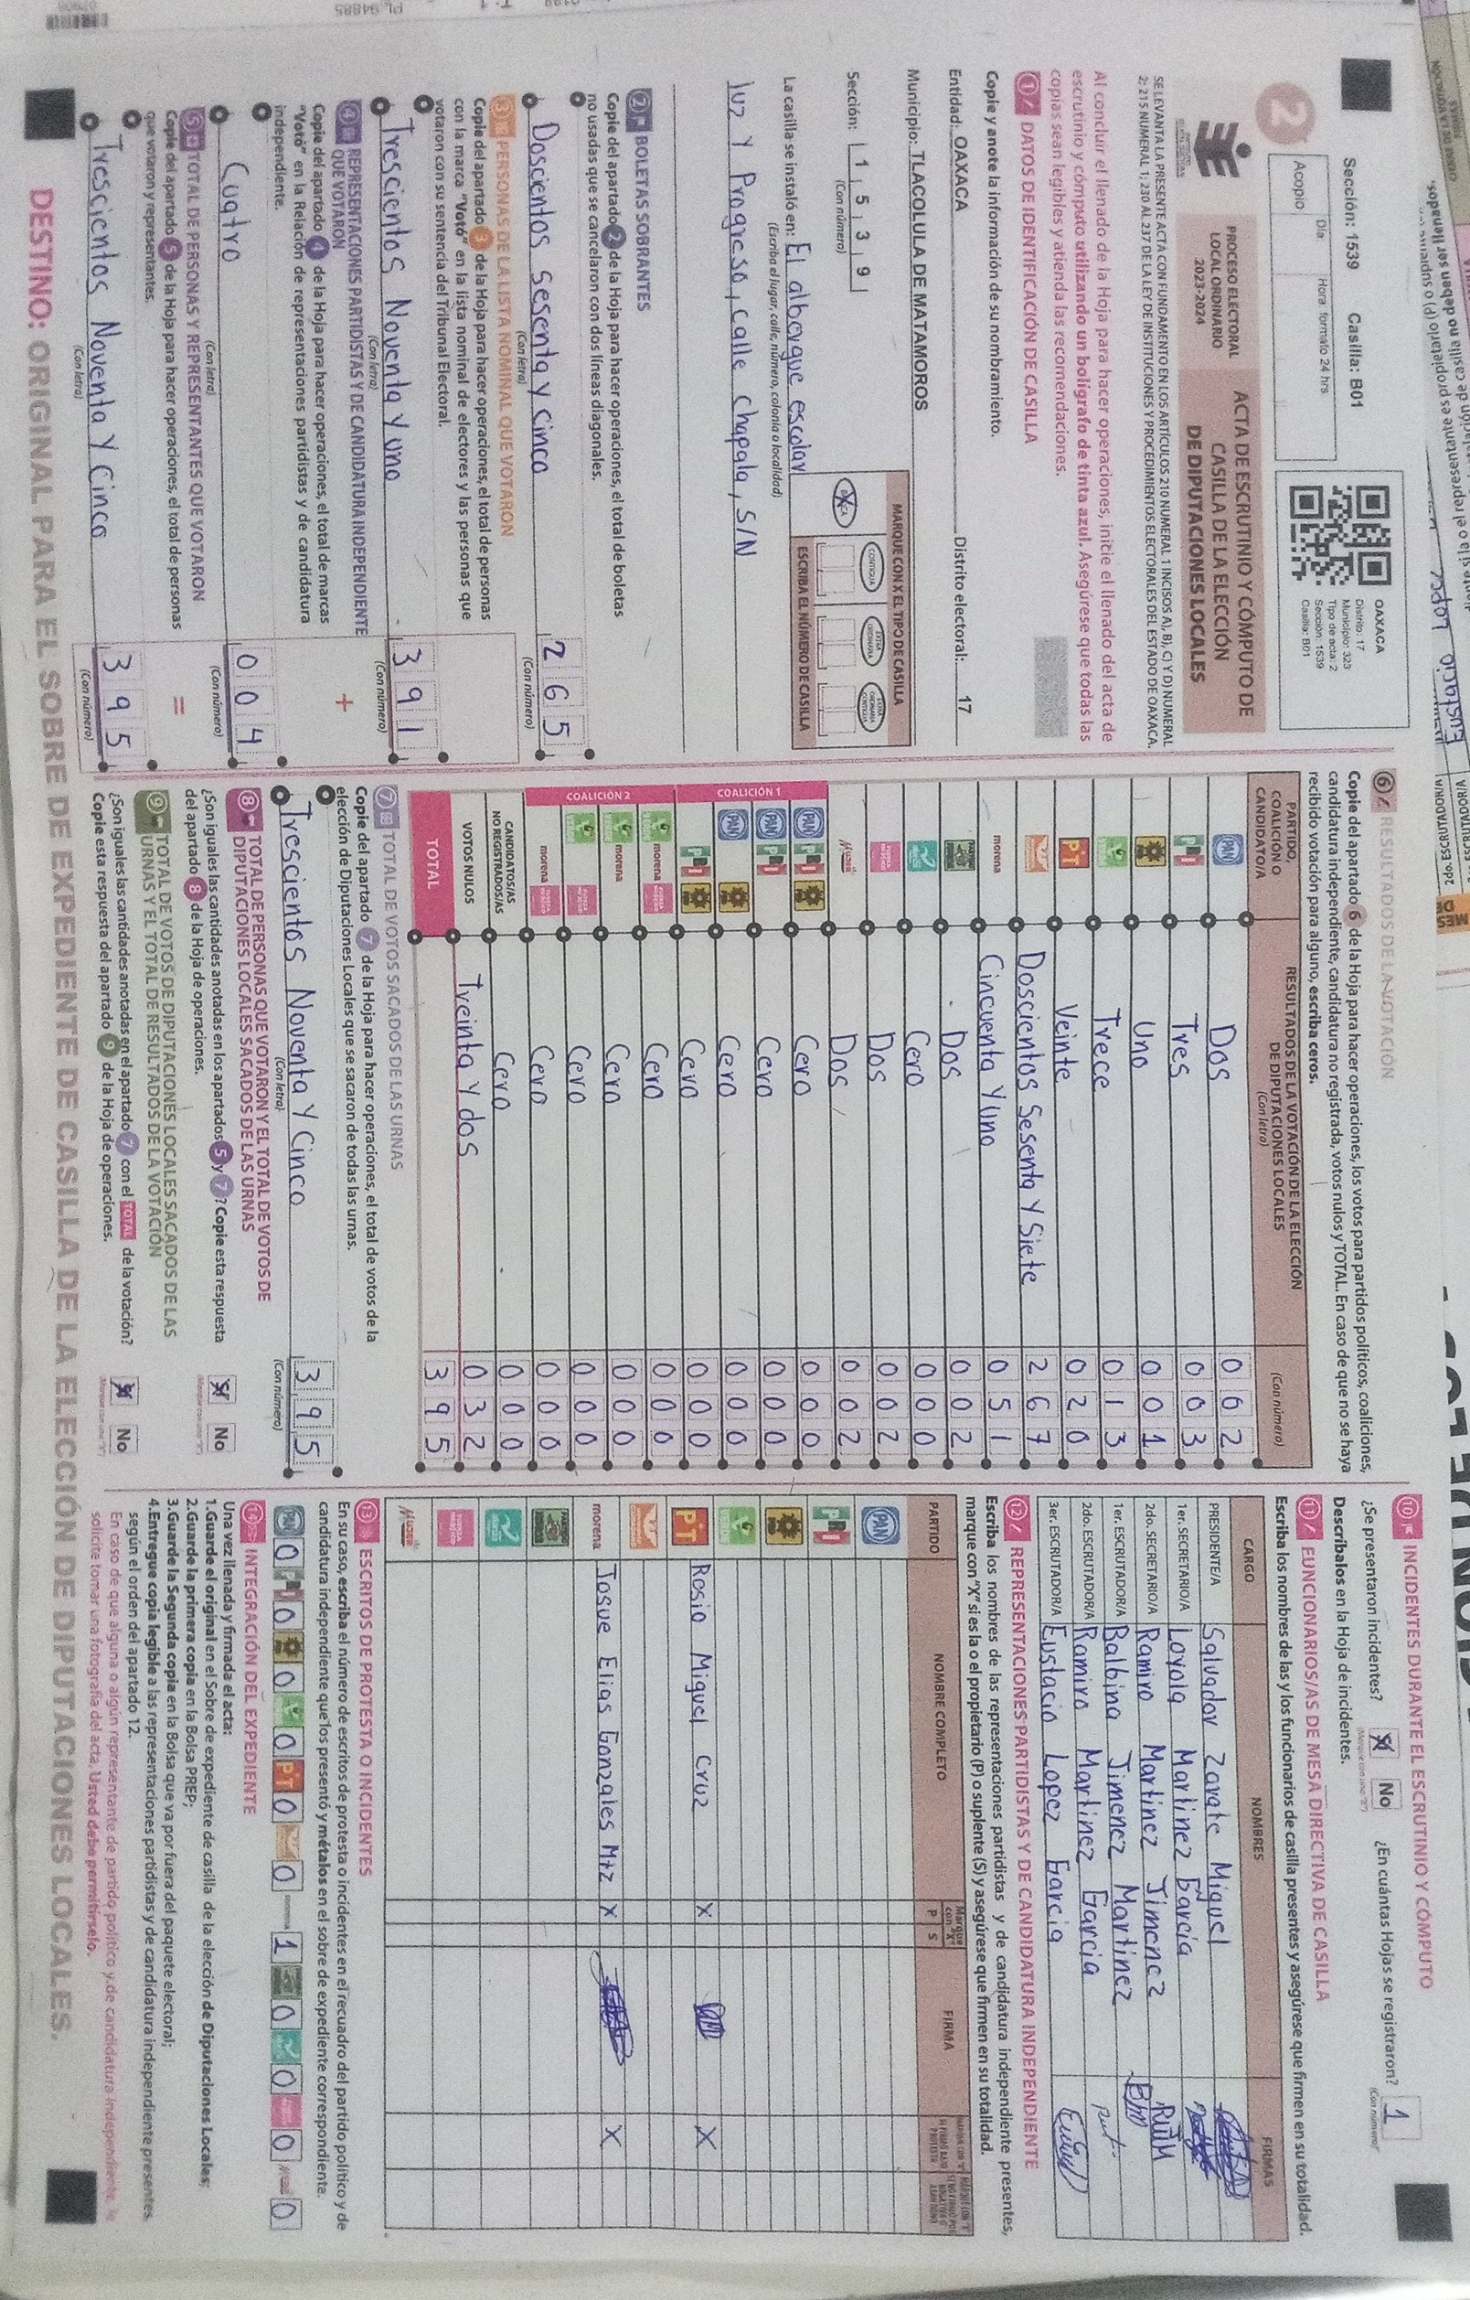 Sección: 1539 Casilla: B01
Día Hora formato 24 hrs
Acopio
OAXACA
Distrito: 17
Municipio: 323
Tipo de acta: 2
Sección: 1539
Casilla: B01
2
PROCESO ELECTORAL
LOCAL ORDINARIO
2023-2024
ACTA DE ESCRUTINIO Y CÓMPUTO DE
CASILLA DE LA ELECCIÓN
DE DIPUTACIONES LOCALES
SE LEVANTA LA PRESENTE ACTA CON FUNDAMENTO EN LOS ARTÍCULOS 210 NUMERAL 1 INCISOS A), B), C) Y D) NUMERAL
2; 215 NUMERAL 1; 230 AL 237 DE LA LEY DE INSTITUCIONES Y PROCEDIMIENTOS ELECTORALES DEL ESTADO DE OAXACA.
Al concluir el llenado de la Hoja para hacer operaciones, inicie el llenado del acta de
escrutinio y cómputo utilizando un bolígrafo de tinta azul. Asegúrese que todas las
copias sean legibles y atienda las recomendaciones.
1 DATOS DE IDENTIFICACIÓN DE CASILLA
Copie y anote la información de su nombramiento.
Entidad: OAXACA Distrito electoral: 17
Municipio: TLACOLULA DE MATAMOROS
Sección: 1 5 3 9
(Con número)
MARQUE CON X EL TIPO DE CASILLA
ESCRIBA EL NÚMERO DE CASILLA
La casilla se instaló en: El albergue escolar
(Escriba el lugar, calle, número, colonia o localidad)
luz y Progreso, calle chapala, S/N
2 BOLETAS SOBRANTES
Copie del apartado 2 de la Hoja para hacer operaciones, el total de boletas
no usadas que se cancelaron con dos líneas diagonales.
Doscientos sesenta y cinco 2 6 5
(Con letra) (Con número)
3 PERSONAS DE LA LISTA NOMINAL QUE VOTARON
Copie del apartado 3 de la Hoja para hacer operaciones, el total de personas
con la marca "Votó" en la lista nominal de electores y las personas que
votaron con su sentencia del Tribunal Electoral.
Trescientos Noventa y uno 3 9 1
(Con letra) (Con número)
4 REPRESENTACIONES PARTIDISTAS Y DE CANDIDATURA INDEPENDIENTE
QUE VOTARON
Copie del apartado 4 de la Hoja para hacer operaciones, el total de marcas
"Votó" en la Relación de representaciones partidistas y de candidatura
independiente.
+
Cuatro 0 0 4
(Con letra) (Con número)
5 TOTAL DE PERSONAS Y REPRESENTANTES QUE VOTARON
Copie del apartado 5 de la Hoja para hacer operaciones, el total de personas
que votaron y representantes.
=
Trescientos Noventa Y Cinco 3 9 5
(Con letra) (Con número)
6 RESULTADOS DE LA VOTACIÓN
Copie del apartado 6 de la Hoja para hacer operaciones, los votos para partidos políticos, coaliciones,
candidatura independiente, candidatura no registrada, votos nulos y TOTAL. En caso de que no se haya
recibido votación para alguno, escriba ceros.
PARTIDO, COALICIÓN O CANDIDATO/A RESULTADOS DE LA VOTACIÓN DE LA ELECCIÓN DE DIPUTACIONES LOCALES (Con letra) (Con número)
PAN Dos 0 0 2
PRI Tres 0 0 3
Uno 0 0 1
Trece 0 1 3
PT Veinte 0 2 0
Doscientos Sesenta Y Siete 2 6 7
morena Cincuenta Y uno 0 5 1
Dos 0 0 2
Cero 0 0 0
Dos 0 0 2
Dos 0 0 2
COALICIÓN 1
PAN PRI Cero 0 0 0
PAN PRI Cero 0 0 0
PAN Cero 0 0 0
PRI Cero 0 0 0
COALICIÓN 2
morena Cero 0 0 0
morena Cero 0 0 0
Cero 0 0 0
morena Cero 0 0 0
CANDIDATOS/AS NO REGISTRADOS/AS Cero 0 0 0
VOTOS NULOS Treinta Y dos 0 3 2
TOTAL 3 9 5
7 TOTAL DE VOTOS SACADOS DE LAS URNAS
Copie del apartado 7 de la Hoja para hacer operaciones, el total de votos de la
elección de Diputaciones Locales que se sacaron de todas las urnas.
Trescientos Noventa Y Cinco 3 9 5
(Con letra) (Con número)
8 TOTAL DE PERSONAS QUE VOTARON Y EL TOTAL DE VOTOS DE
DIPUTACIONES LOCALES SACADOS DE LAS URNAS
¿Son iguales las cantidades anotadas en los apartados 5 y 7? Copie esta respuesta
del apartado 8 de la Hoja de operaciones.
Sí No
9 TOTAL DE VOTOS DE DIPUTACIONES LOCALES SACADOS DE LAS
URNAS Y EL TOTAL DE RESULTADOS DE LA VOTACIÓN
¿Son iguales las cantidades anotadas en el apartado 7 con el TOTAL de la votación?
Copie esta respuesta del apartado 9 de la Hoja de operaciones.
Sí No
10 INCIDENTES DURANTE EL ESCRUTINIO Y CÓMPUTO
¿Se presentaron incidentes? Sí No ¿En cuántas Hojas se registraron? 1
(Marque con una "X") (Con número)
Descríbalos en la Hoja de incidentes.
11 FUNCIONARIOS/AS DE MESA DIRECTIVA DE CASILLA
Escriba los nombres de las y los funcionarios de casilla presentes y asegúrese que firmen en su totalidad.
CARGO NOMBRES FIRMAS
PRESIDENTE/A Salvador Zarate Miguel
1er. SECRETARIO/A Loyola Martinez Garcia
2do. SECRETARIO/A Ramiro Martinez Jimenez
1er. ESCRUTADOR/A Balbina Jimenez Martinez
2do. ESCRUTADOR/A Ramiro Martinez Garcia
3er. ESCRUTADOR/A Eustacio Lopez Garcia
12 REPRESENTACIONES PARTIDISTAS Y DE CANDIDATURA INDEPENDIENTE
Escriba los nombres de las representaciones partidistas y de candidatura independiente presentes,
marque con "X" si es la o el propietario (P) o suplente (S) y asegúrese que firmen en su totalidad.
PARTIDO NOMBRE COMPLETO Marque con "X" P S FIRMA
PAN
PRI
PT Rosio Miguel Cruz X X
morena Josue Elias Gonzales Mtz X X
13 ESCRITOS DE PROTESTA O INCIDENTES
En su caso, escriba el número de escritos de protesta o incidentes en el recuadro del partido político y de
candidatura independiente que los presentó y métalos en el sobre de expediente correspondiente.
PAN 0 PRI 0 0 0 PT 0 0 1 0 0 0 0
14 INTEGRACIÓN DEL EXPEDIENTE
Una vez llenada y firmada el acta:
1.Guarde el original en el Sobre de expediente de casilla de la elección de Diputaciones Locales;
2.Guarde la primera copia en la Bolsa PREP;
3.Guarde la Segunda copia en la Bolsa que va por fuera del paquete electoral;
4.Entregue copia legible a las representaciones partidistas y de candidatura independiente presentes
según el orden del apartado 12.
En caso de que alguna o algún representante de partido político y de candidatura independiente, le
solicite tomar una fotografía del acta, Usted debe permitírselo.
DESTINO: ORIGINAL PARA EL SOBRE DE EXPEDIENTE DE CASILLA DE LA ELECCIÓN DE DIPUTACIONES LOCALES.